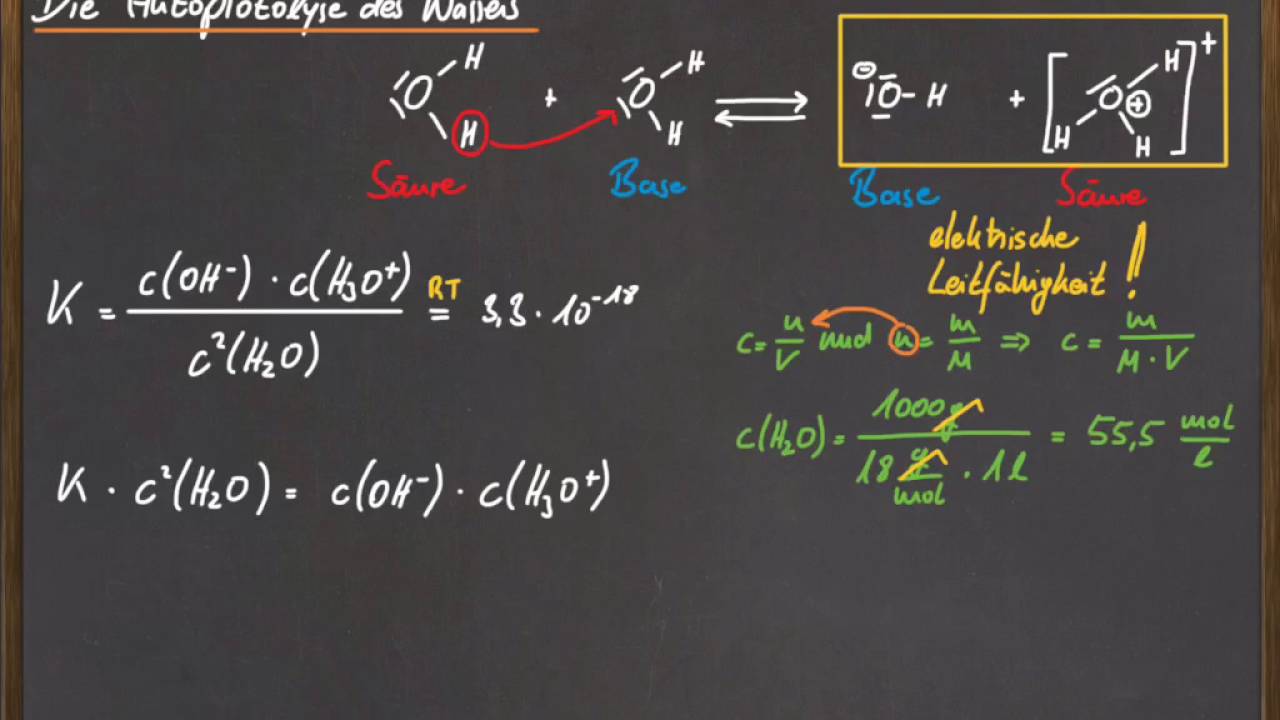 Die Autoprotolyse des Wassers
H H
O + O ⇌ ⊖ |O-H + [H O⊕ H H]⁺
H H
Säure Base Base Säure
elektrische
Leitfähigkeit !
K = c(OH⁻) · c(H₃O⁺) / c²(H₂O) =RT 3,3 · 10⁻¹⁸
c = n/V und n = m/M ⇒ c = m/(M · V)
c(H₂O) = 1000g / (18 g/mol · 1l) = 55,5 mol/l
K · c²(H₂O) = c(OH⁻) · c(H₃O⁺)